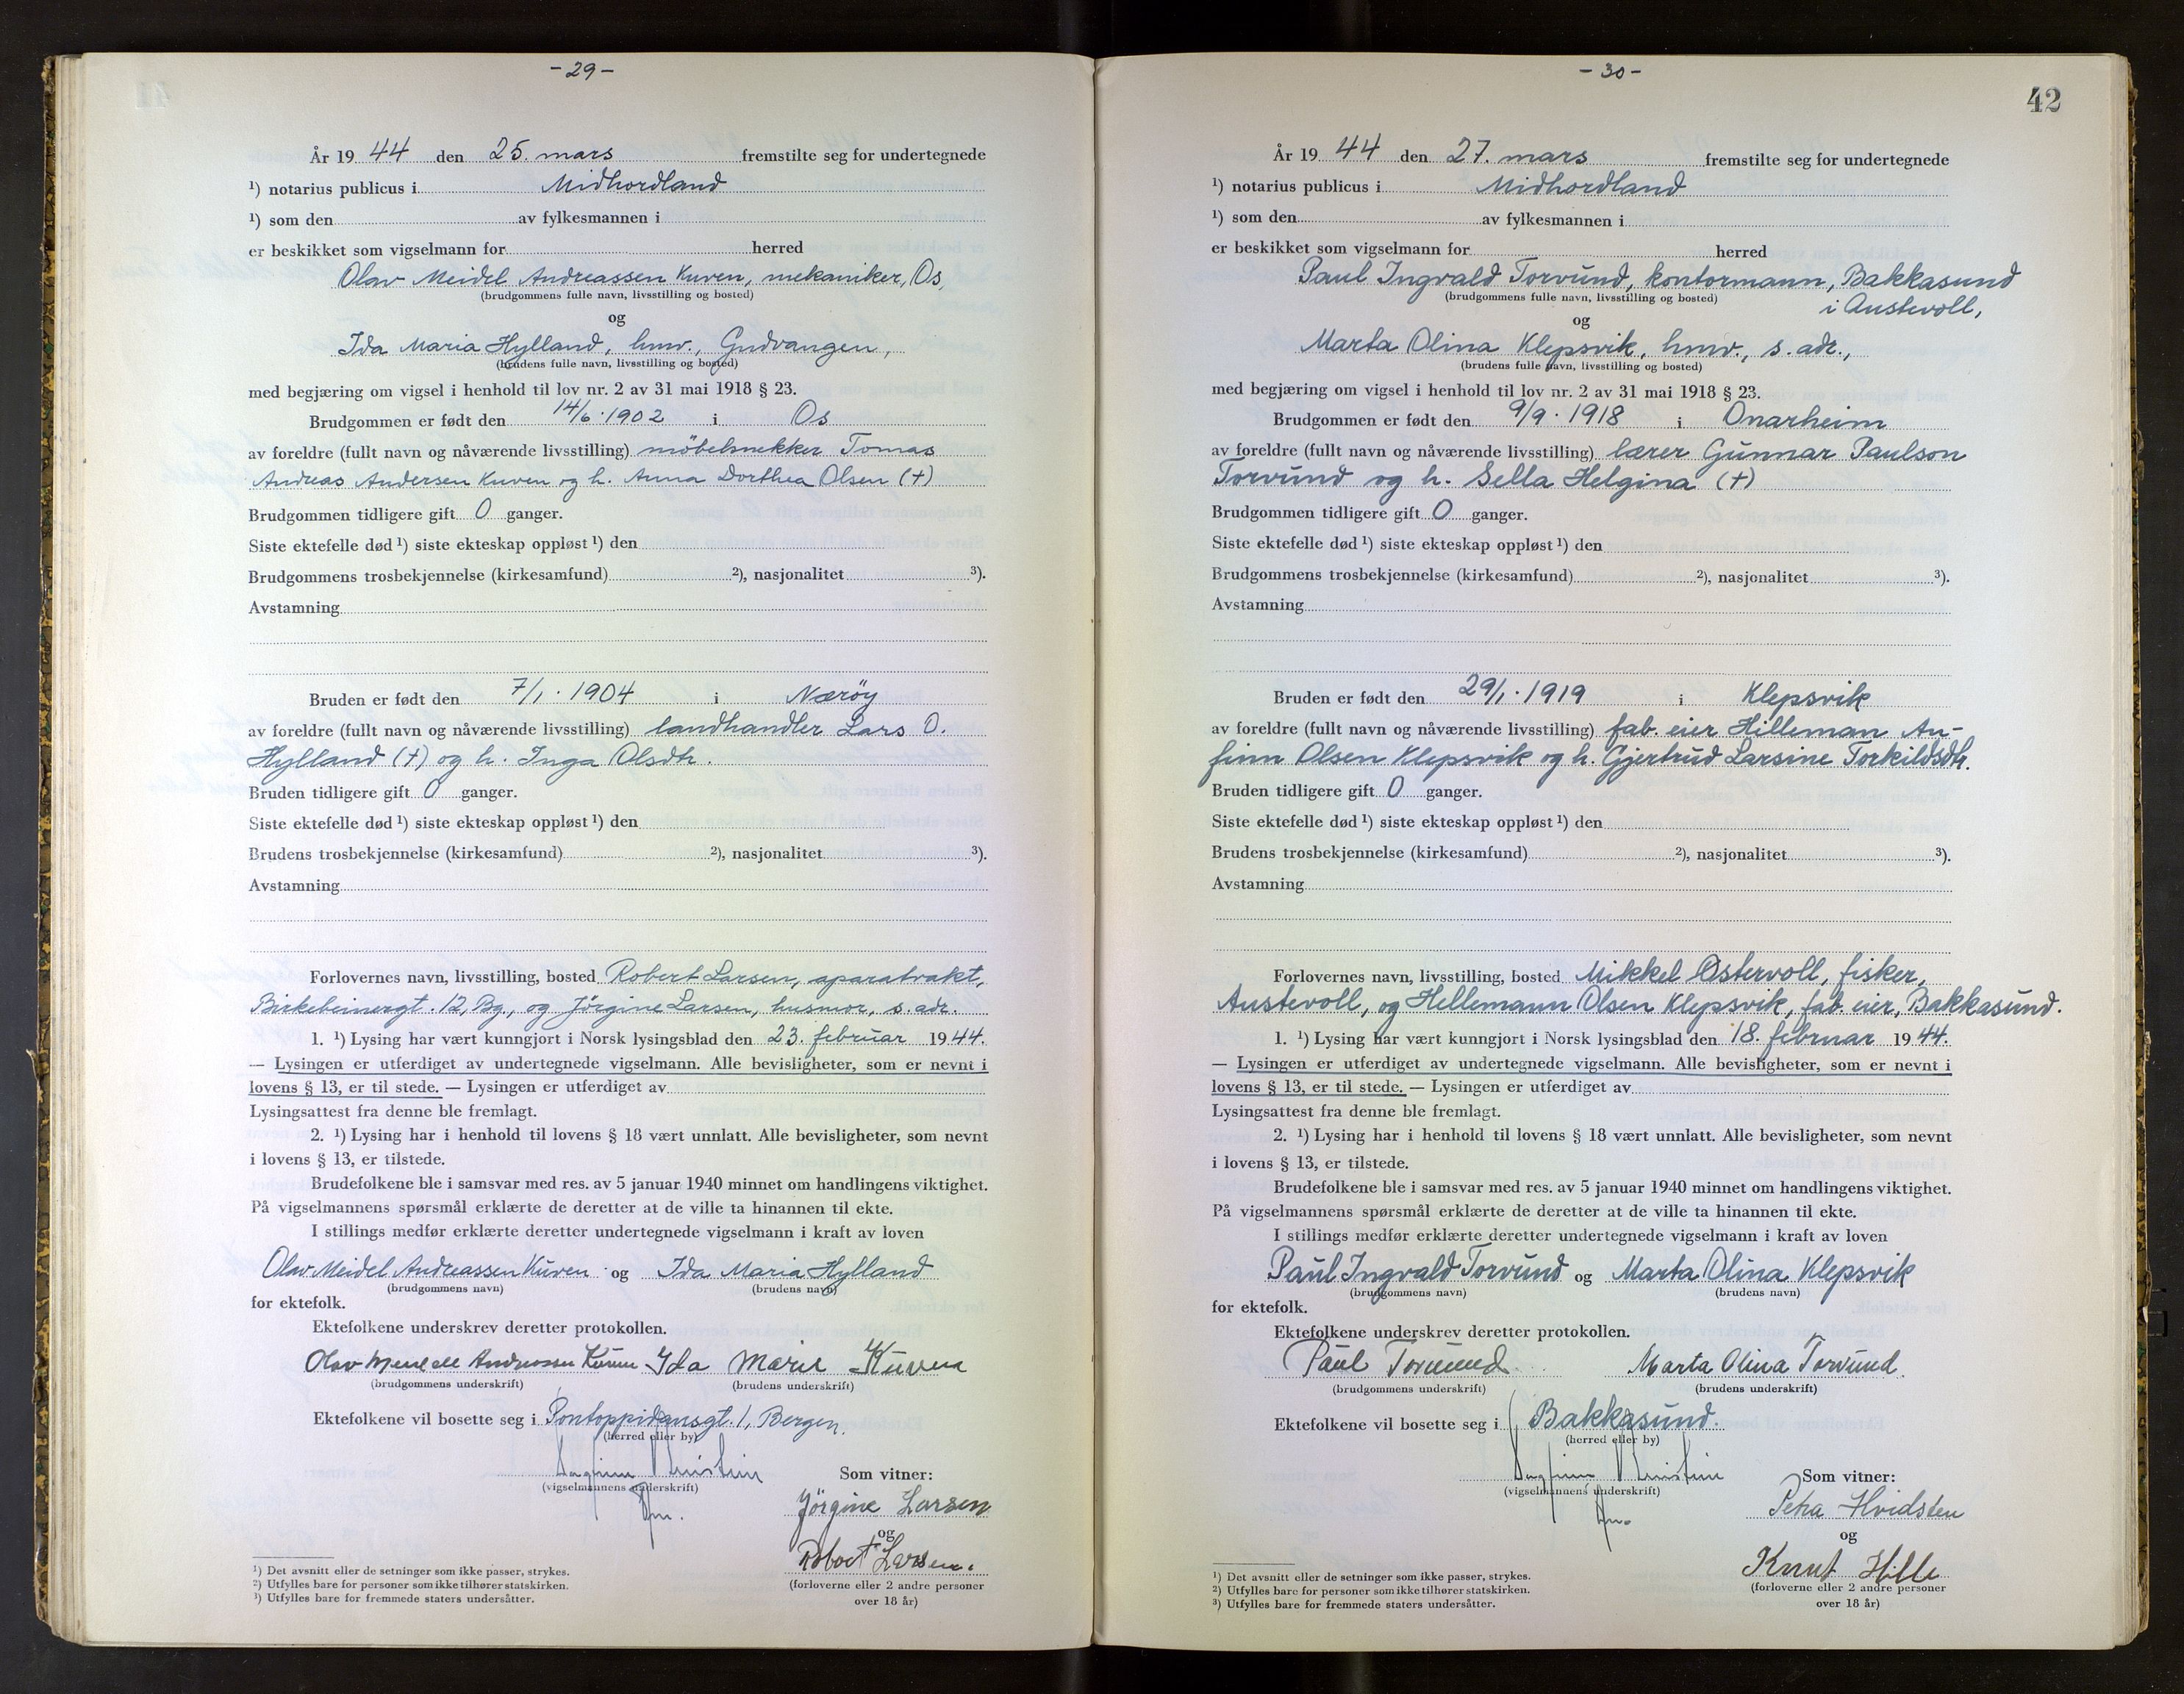 - 29 -
År 19 44 den 25. mars fremstilte seg for undertegnede
¹) notarius publicus i Midhordland
¹) som den av fylkesmannen i
er beskikket som vigselmann for herred
Olav Meidel Andreassen Kuven, mekaniker, Os,
(brudgommens fulle navn, livsstilling og bosted)
og
Ida Maria Hylland, hmv., Gudvangen,
(brudens fulle navn, livsstilling og bosted)
med begjæring om vigsel i henhold til lov nr. 2 av 31 mai 1918 § 23.
Brudgommen er født den 14/6. 1902 i Os
av foreldre (fullt navn og nåværende livsstilling) möbelsnekker Tomas
Andreas Andersen Kuven og h. Anna Dorthea Olsen (+)
Brudgommen tidligere gift 0 ganger.
Siste ektefelle død ¹) siste ekteskap oppløst ¹) den
Brudgommens trosbekjennelse (kirkesamfund) ²), nasjonalitet ³).
Avstamning
Bruden er født den 7/1. 1904 i Nærøy
av foreldre (fullt navn og nåværende livsstilling) landhandler Lars O.
Hylland (+) og h. Inga Olsdtr.
Bruden tidligere gift 0 ganger.
Siste ektefelle død ¹) siste ekteskap oppløst ¹) den
Brudens trosbekjennelse (kirkesamfund) ²), nasjonalitet ³).
Avstamning
Forlovernes navn, livsstilling, bosted Robert Larsen, aparatvakt,
Birkebeinergt. 12, Bg., og Jörgine Larsen, husmor, s. adr.
1. ¹) Lysing har vært kunngjort i Norsk lysingsblad den 23. februar 1944.
— Lysingen er utferdiget av undertegnede vigselmann. Alle bevisligheter, som er nevnt i
lovens § 13, er til stede. — Lysingen er utferdiget av
Lysingsattest fra denne ble fremlagt.
2. ¹) Lysing har i henhold til lovens § 18 vært unnlatt. Alle bevisligheter, som nevnt
i lovens § 13, er tilstede.
Brudefolkene ble i samsvar med res. av 5 januar 1940 minnet om handlingens viktighet.
På vigselmannens spørsmål erklærte de deretter at de ville ta hinannen til ekte.
I stillings medfør erklærte deretter undertegnede vigselmann i kraft av loven
Olav Meidel Andreassen Kuven og Ida Maria Hylland
(brudgommens navn) (brudens navn)
for ektefolk.
Ektefolkene underskrev deretter protokollen.
Olav Andreassen Kuven Ida Marie Kuven
(brudgommens underskrift) (brudens underskrift)
Ektefolkene vil bosette seg i Pontoppidansgt. 1, Bergen.
(herred eller by)
Som vitner:
(vigselmannens underskrift)
Jörgine Larsen
og
Robert Larsen.
(forloverne eller 2 andre personer
over 18 år)
¹) Det avsnitt eller de setninger som ikke passer, strykes.
²) Utfylles bare for personer som ikke tilhører statskirken.
³) Utfylles bare for fremmede staters undersåtter.
- 30 -
42
År 19 44 den 27. mars fremstilte seg for undertegnede
¹) notarius publicus i Midhordland
¹) som den av fylkesmannen i
er beskikket som vigselmann for herred
Paul Ingvald Torvund, kontormann, Bakkasund
(brudgommens fulle navn, livsstilling og bosted)
i Austevoll,
og
Marta Olina Klepsvik, hmv., s. adr.,
(brudens fulle navn, livsstilling og bosted)
med begjæring om vigsel i henhold til lov nr. 2 av 31 mai 1918 § 23.
Brudgommen er født den 9/9. 1918 i Onarheim
av foreldre (fullt navn og nåværende livsstilling) lærer Gunnar Paulson
Torvund og h. Sella Helgina (+)
Brudgommen tidligere gift 0 ganger.
Siste ektefelle død ¹) siste ekteskap oppløst ¹) den
Brudgommens trosbekjennelse (kirkesamfund) ²), nasjonalitet ³).
Avstamning
Bruden er født den 29/1. 1919 i Klepsvik
av foreldre (fullt navn og nåværende livsstilling) fab. eier Hilleman An-
finn Olsen Klepsvik og h. Gjertrud Larsine Torkildsdtr.
Bruden tidligere gift 0 ganger.
Siste ektefelle død ¹) siste ekteskap oppløst ¹) den
Brudens trosbekjennelse (kirkesamfund) ²), nasjonalitet ³).
Avstamning
Forlovernes navn, livsstilling, bosted Mikkel Østervoll, fisker,
Austevoll, og Hellemann Olsen Klepsvik, fab. eier, Bakkasund.
1. ¹) Lysing har vært kunngjort i Norsk lysingsblad den 18. februar 1944.
— Lysingen er utferdiget av undertegnede vigselmann. Alle bevisligheter, som er nevnt i
lovens § 13, er til stede. — Lysingen er utferdiget av
Lysingsattest fra denne ble fremlagt.
2. ¹) Lysing har i henhold til lovens § 18 vært unnlatt. Alle bevisligheter, som nevnt
i lovens § 13, er tilstede.
Brudefolkene ble i samsvar med res. av 5 januar 1940 minnet om handlingens viktighet.
På vigselmannens spørsmål erklærte de deretter at de ville ta hinannen til ekte.
I stillings medfør erklærte deretter undertegnede vigselmann i kraft av loven
Paul Ingvald Torvund og Marta Olina Klepsvik
(brudgommens navn) (brudens navn)
for ektefolk.
Ektefolkene underskrev deretter protokollen.
Paul Torvund Marta Olina Torvund.
(brudgommens underskrift) (brudens underskrift)
Ektefolkene vil bosette seg i Bakkasund.
(herred eller by)
Som vitner:
(vigselmannens underskrift)
Petra Hvidsten
og
Knut Hille
(forloverne eller 2 andre personer
over 18 år)
¹) Det avsnitt eller de setninger som ikke passer, strykes.
²) Utfylles bare for personer som ikke tilhører statskirken.
³) Utfylles bare for fremmede staters undersåtter.